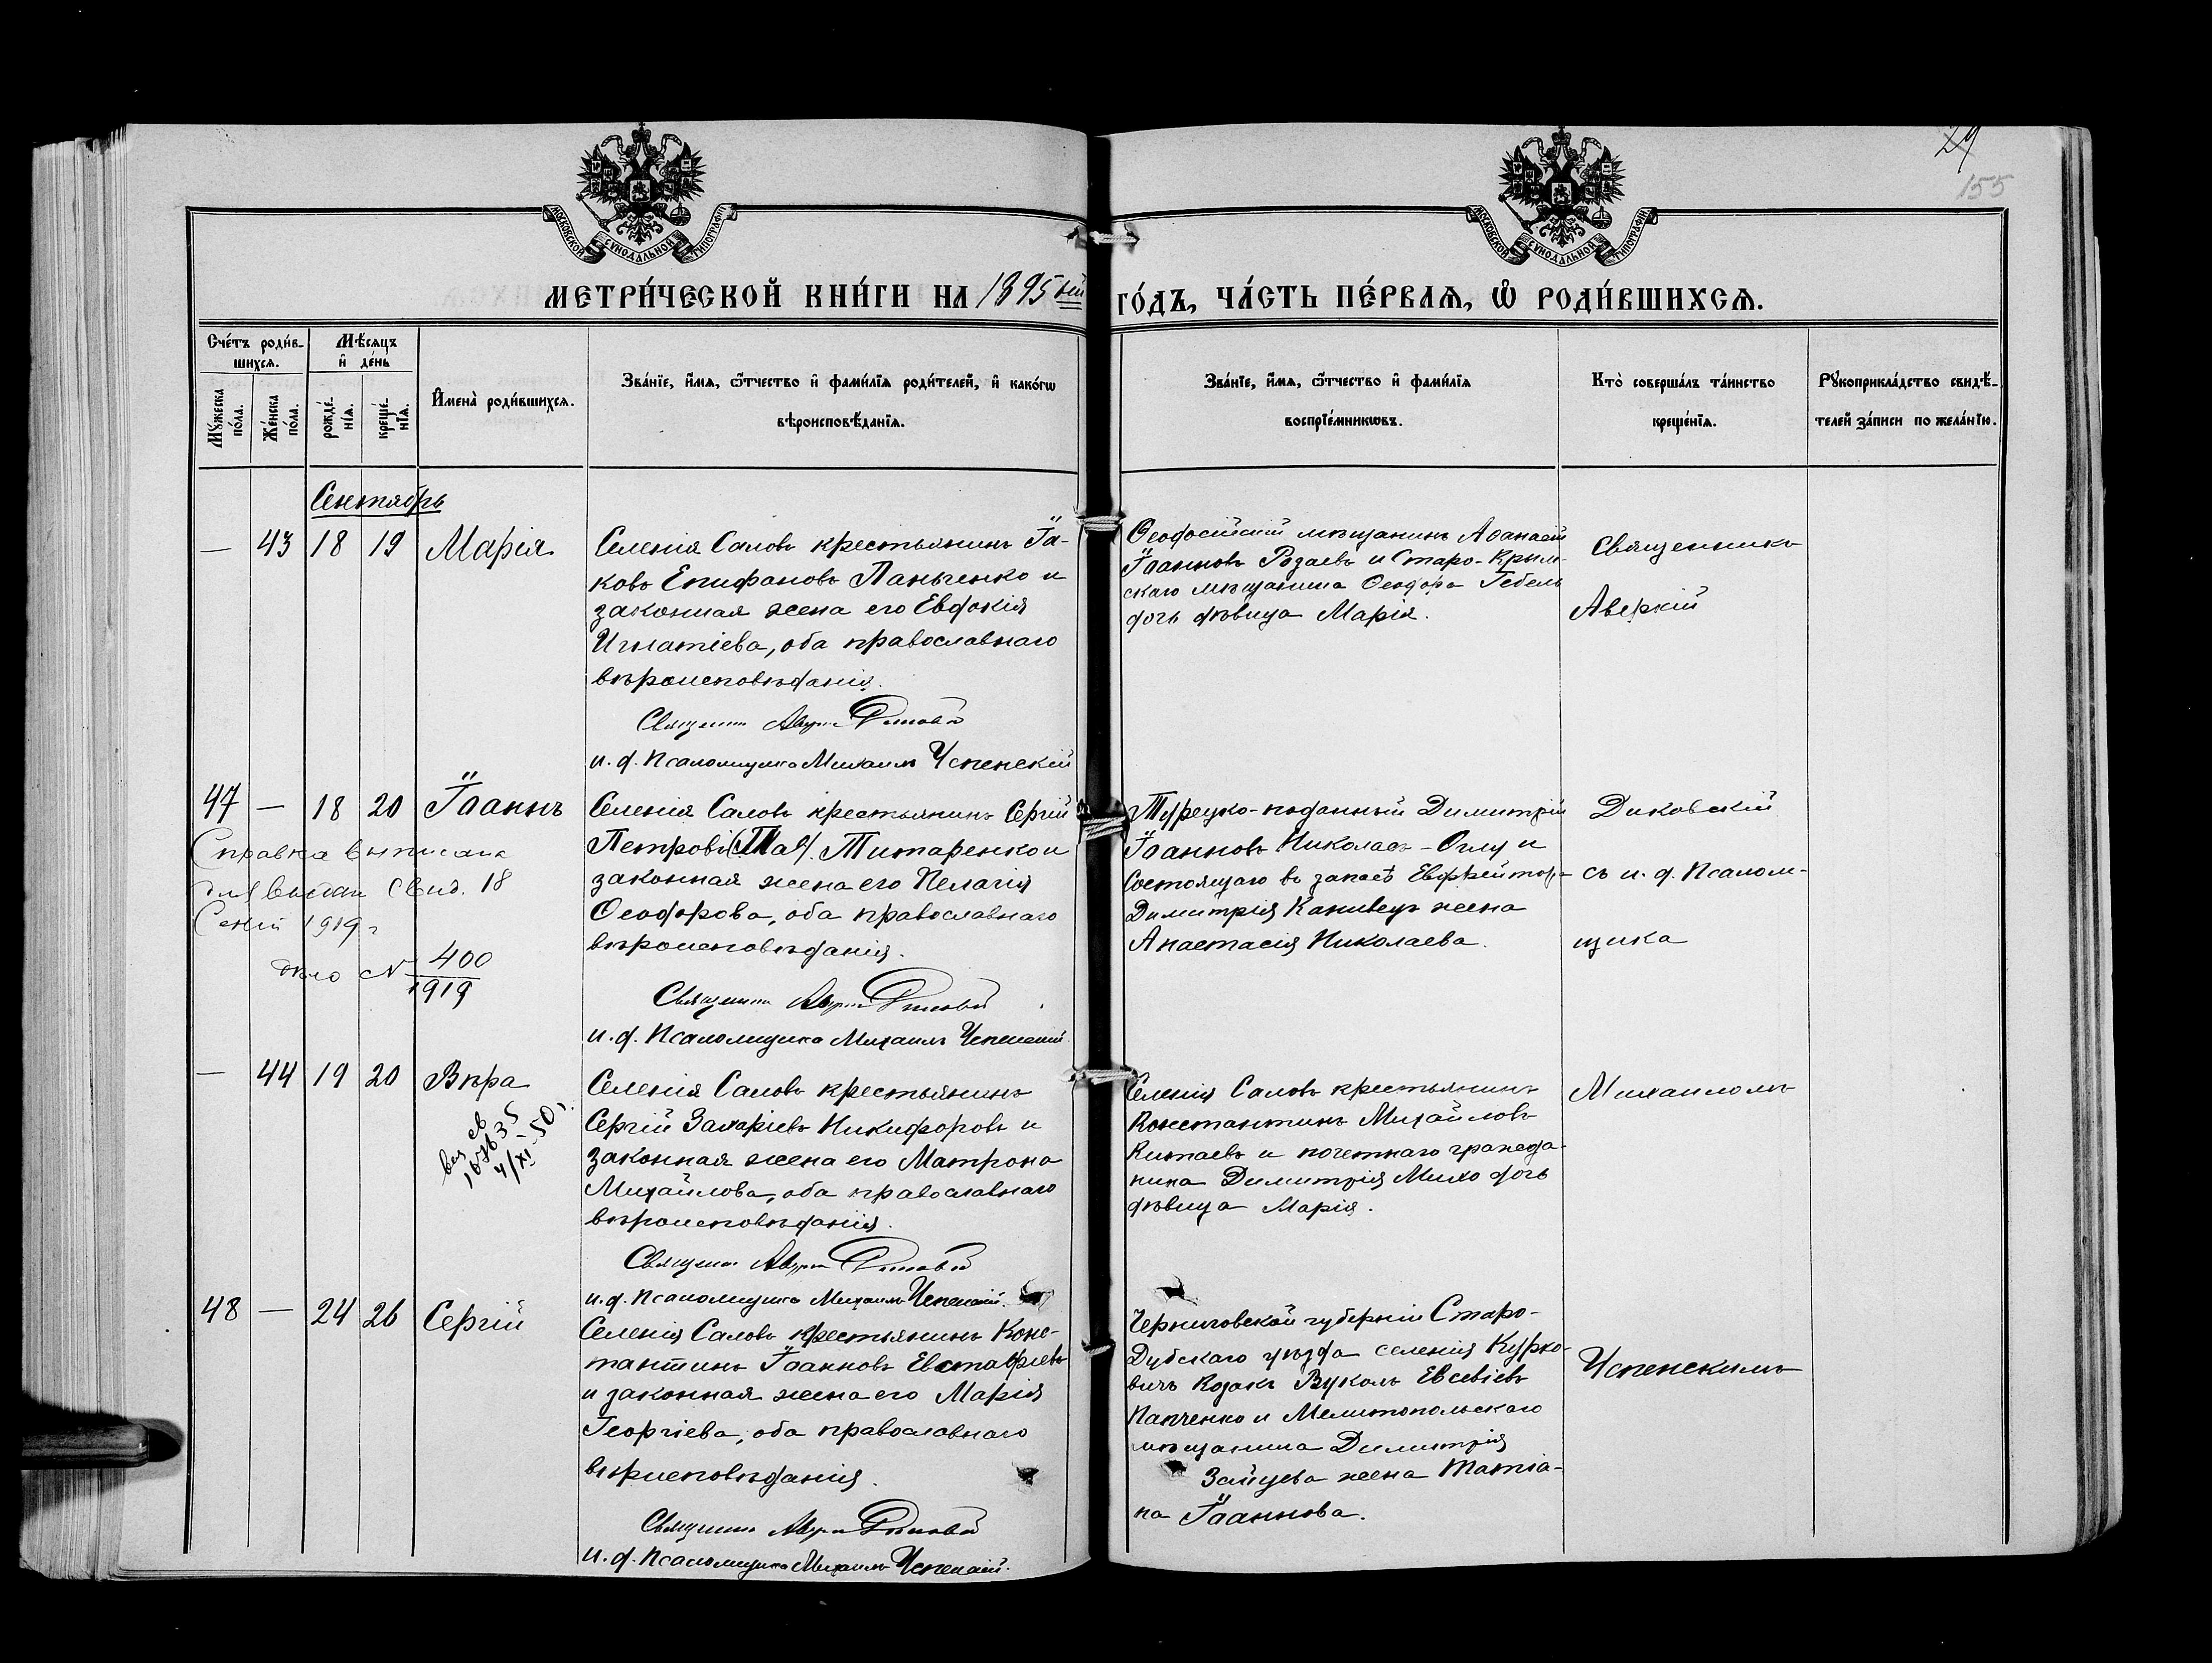 29
155
МОСКОВСКОЙ СѴНОДАЛЬНОЙ ТИПОГРАФІИ
МОСКОВСКОЙ СѴНОДАЛЬНОЙ ТИПОГРАФІИ
МЕТРИ́ЧЕСКОЙ КНИ́ГИ НА 1895 ый
ГО́ДЪ, ЧА́СТЬ ПЕ́РВАЯ, Ѡ РОДИ́ВШИХСЯ.
Сче́тъ роди́в-
шихся.
Мѣ́сяцъ
и де́нь
Мꙋ́жеска по́ла.
Же́нска по́ла.
рожде́-
нїя.
креще́-
нїя.
И҆мена̀ роди́вшихся.
Зва́нїе, и҆́мя, ѻ҆́тчество и҆ фами́лїя роди́телей, и҆ како́гѡ
вѣроисповѣ́данїя.
Зва́нїе, и҆́мя, ѻ҆́тчество и҆ фами́лїя
воспрїе́мникѡвъ.
Кто̀ соверша́лъ та́инство
креще́нїя.
Рꙋкоприкла́дство свидѣ́-
телей за́писи по жела́нїю.
Сентябрь
— 43 18 19 Марія
Селенія Саловъ крестьянинъ Іа-
ковъ Епифановъ Паньченко и
законная жена его Евдокія
Игнатіева, оба православнаго
вѣроисповѣданія.
Священникъ Аверкій Диковскій
и. д. Псаломщика Михаилъ Успенскій
Ѳеодосійскій мѣщанинъ Аѳанасій
Іоанновъ Розаевъ и Старо-Крым-
скаго мѣщанина Ѳеодора Гебель
дочь дѣвица Марія.
Священникъ
Аверкій
47 — 18 20 Іоаннъ
Справка выписана
для выдачи свид. 18
1919 г
дѣло № 400
1919
Селенія Саловъ крестьянинъ Сергій
Петровъ Титаренко и
законная жена его Пелагія
Ѳеодорова, оба православнаго
вѣроисповѣданія.
Священникъ Аверкій Диковскій
и. д. Псаломщика Михаилъ Успенскій
Турецко-поданный Димитрій
Іоанновъ Николаъ-Оглу и
состоящаго въ запасѣ Евфрейтора
Димитрія Каниvецъ жена
Анастасія Николаева.
Диковскій
съ и. д. Псалом-
щика
— 44 19 20 Вѣра
выд св
167635
4/XI-50 г.
Селенія Саловъ крестьянинъ
Сергій Захаріевъ Никифоровъ и
законная жена его Матрона
Михайлова, оба православнаго
вѣроисповѣданія.
Священникъ Аверкій Диковскій
и. д. Псаломщика Михаилъ Успенскій.
Селенія Саловъ крестьянинъ
Константинъ Михайловъ
Китаевъ и почетнаго гражда-
нина Димитрія Михо дочь
дѣвица Марія.
Михаиломъ
48 — 24 26 Сергій
Селенія Саловъ крестьянинъ Конс-
тантинъ Іоанновъ Евстафіевъ
и законная жена его Марія
Георгіева, оба православнаго
вѣроисповѣданія.
Священникъ Аверкій Диковскій
и. д. Псаломщика Михаилъ Успенскій.
Черниговской губерніи Старо-
Дубскаго уѣзда селенія Курко-
вичъ Козакъ Вуколъ Евсевіевъ
Панченко и Мелитопольскаго
мѣщанина Димитрія
Зайцева жена Татіа-
на Іоаннова.
Успенскимъ